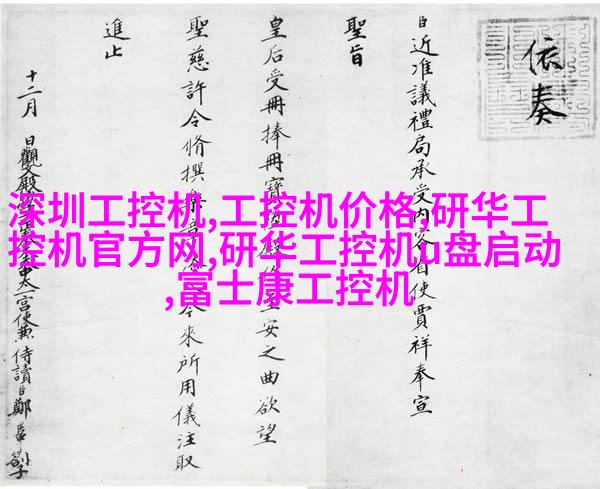 依奏
臣近准議禮局承受内客省使賈祥奉宣
聖旨
皇后受冊捧冊寶安之曲欲望
聖慈許令脩撰來所用儀注取
進止
十二月 日觀文殿中太一宮使兼侍讀臣鄭
深圳工控机,工控机价格,研华工
控机官方网,研华工控机u盘启动
,富士康工控机